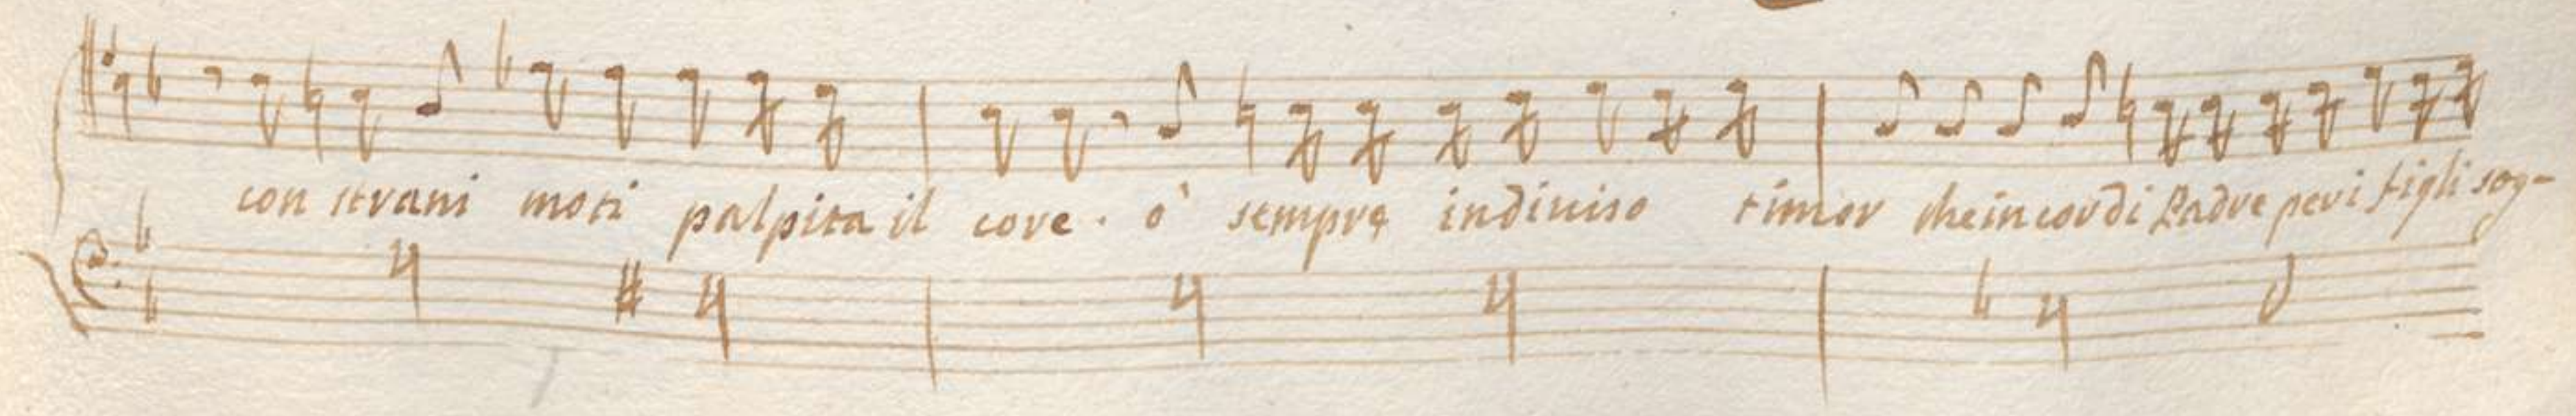 con strani moti palpita il core. o' sempre indiuiso timor che in cor di Padre per i figli sog-